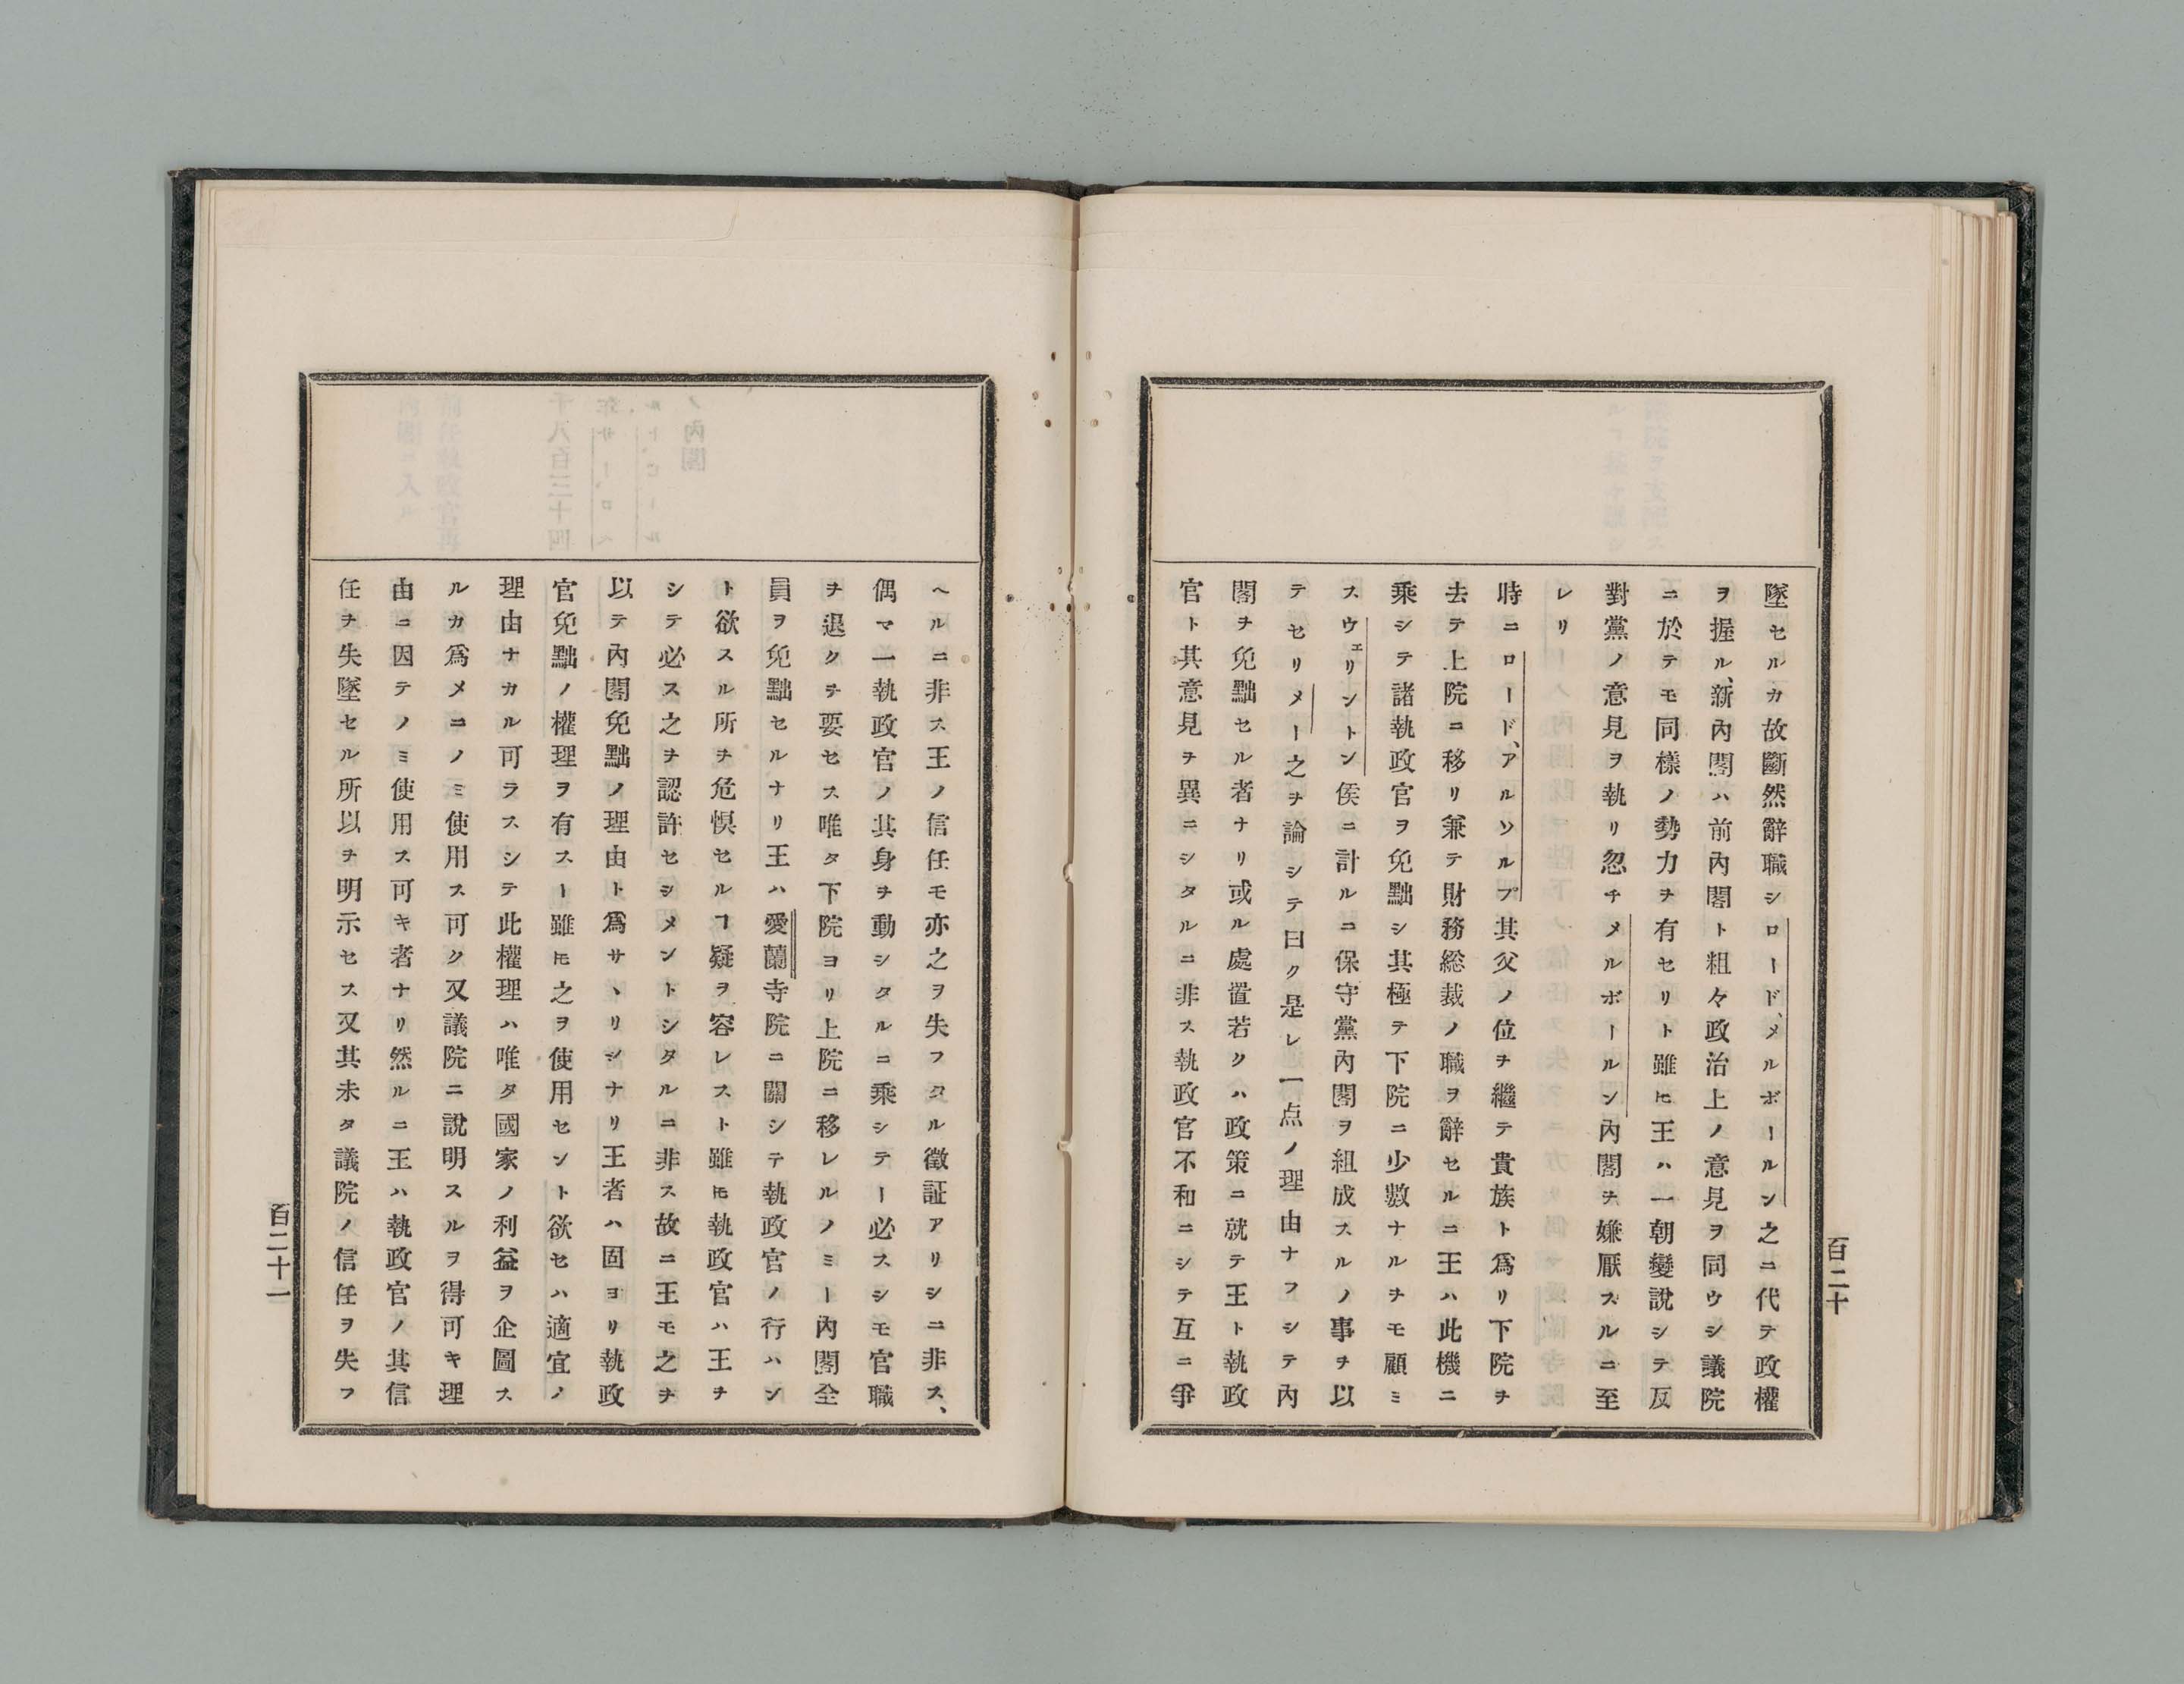 百二十
墜セルカ故斷然辭職シロード、メルボールン之ニ代テ政權
ヲ握ル、新內閣ハ前內閣ト粗々政治上ノ意見ヲ同ウシ議院
ニ於テモ同樣ノ勢力ヲ有セリト雖𪜈王ハ一朝變說シテ反
對黨ノ意見ヲ執リ忽チメルボールン內閣ヲ嫌厭スルニ至
レリ
時ニロード、アルソルプ其父ノ位ヲ繼テ貴族ト爲リ下院ヲ
去テ上院ニ移リ兼テ財務総裁ノ職ヲ辭セルニ王ハ此機ニ
乘シテ諸執政官ヲ免黜シ其極テ下院ニ少數ナルヲモ顧ミ
スウェリントン侯ニ計ルニ保守黨內閣ヲ組成スルノ事ヲ以
テセリメー之ヲ論シテ曰ク是レ一点ノ理由ナフシテ內
閣ヲ免黜セル者ナリ或ル處置若クハ政策ニ就テ王ト執政
官ト其意見ヲ異ニシタルニ非ス執政官不和ニシテ互ニ爭
ヘルニ非ス王ノ信任モ亦之ヲ失フタル徵証アリシニ非ス、
偶マ一執政官ノ其身ヲ動シタルニ乘シテー必スシモ官職
ヲ退クヲ要セス唯タ下院ヨリ上院ニ移レルノミー內閣全
員ヲ免黜セルナリ王ハ愛蘭寺院ニ關シテ執政官ノ行ハン
ト欲スル所ヲ危惧セルヿ疑ヲ容レスト雖𪜈執政官ハ王ヲ
シテ必ス之ヲ認許セシメントシタルニ非ス故ニ王モ之ヲ
以テ內閣免黜ノ理由ト爲サヽリシナリ王者ハ固ヨリ執政
官免黜ノ權理ヲ有スー雖𪜈之ヲ使用セント欲セハ適宜ノ
理由ナカル可ラスシテ此權理ハ唯タ國家ノ利益ヲ企圖ス
ルカ爲メニノミ使用ス可ク又議院ニ說明スルヲ得可キ理
由ニ因テノミ使用ス可キ者ナリ然ルニ王ハ執政官ノ其信
任ヲ失墜セル所以ヲ明示セス又其未タ議院ノ信任ヲ失フ
百二十一